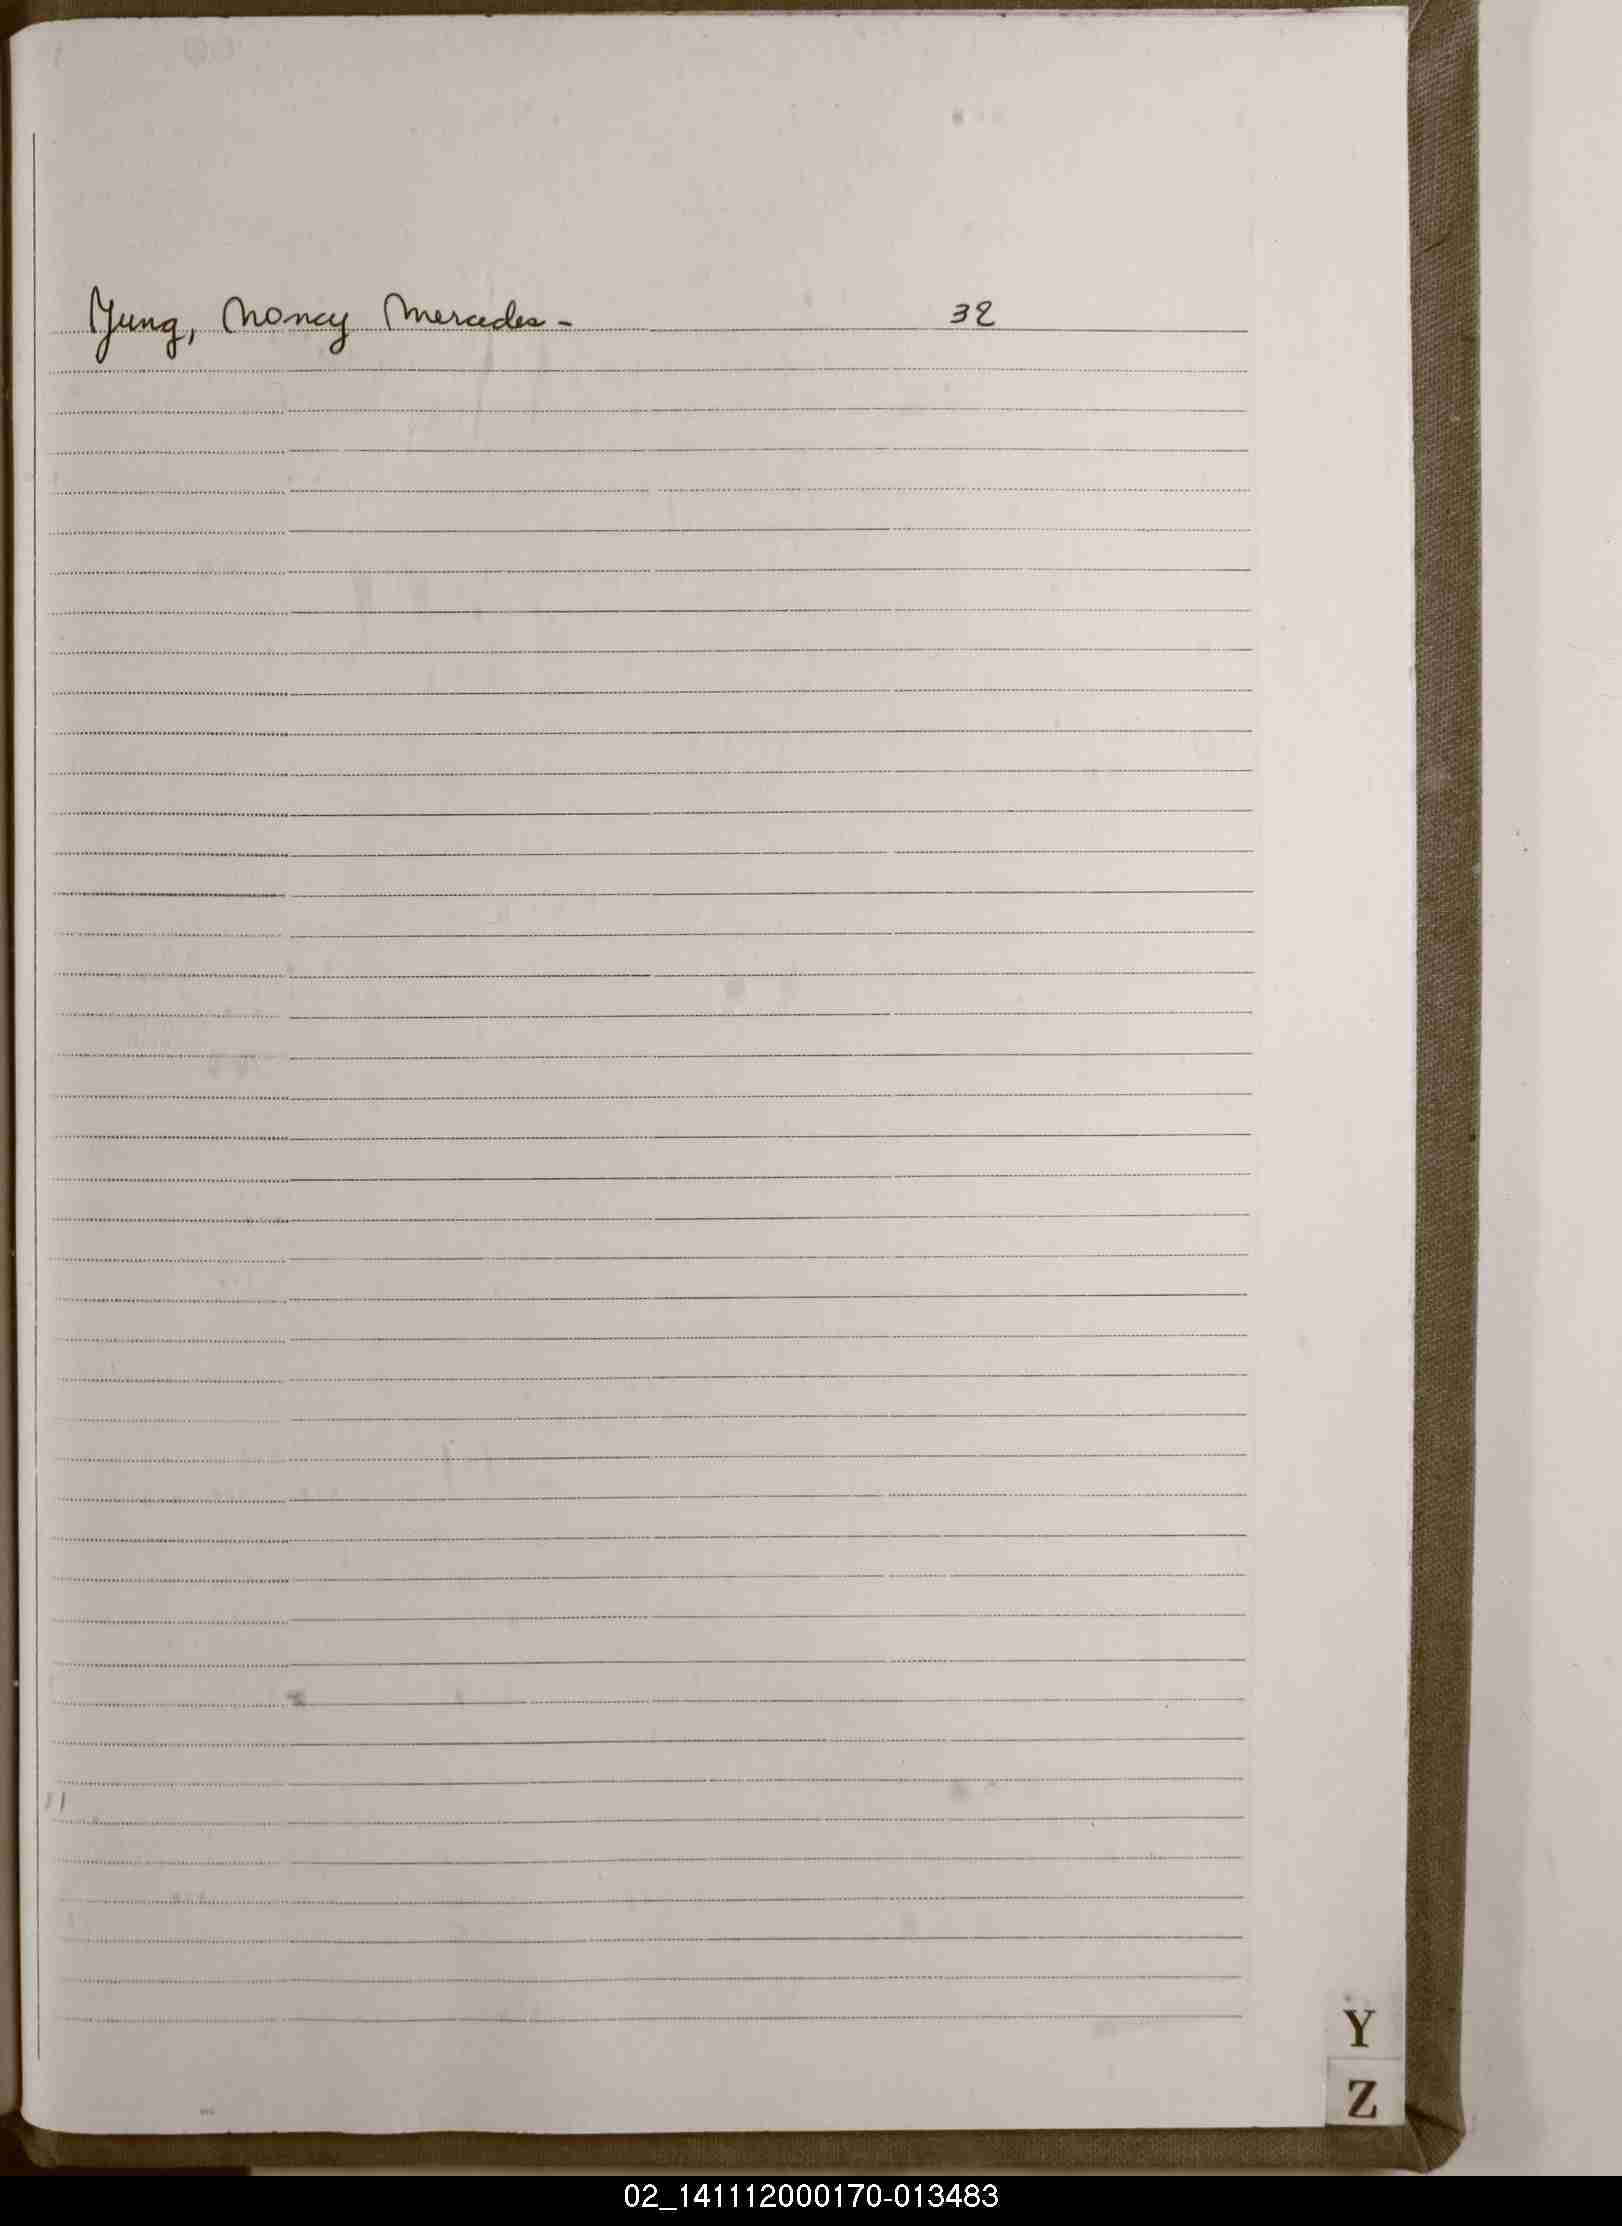 Yung, Nancy Mercedes - 32
Y
Z
02_141112000170-013483